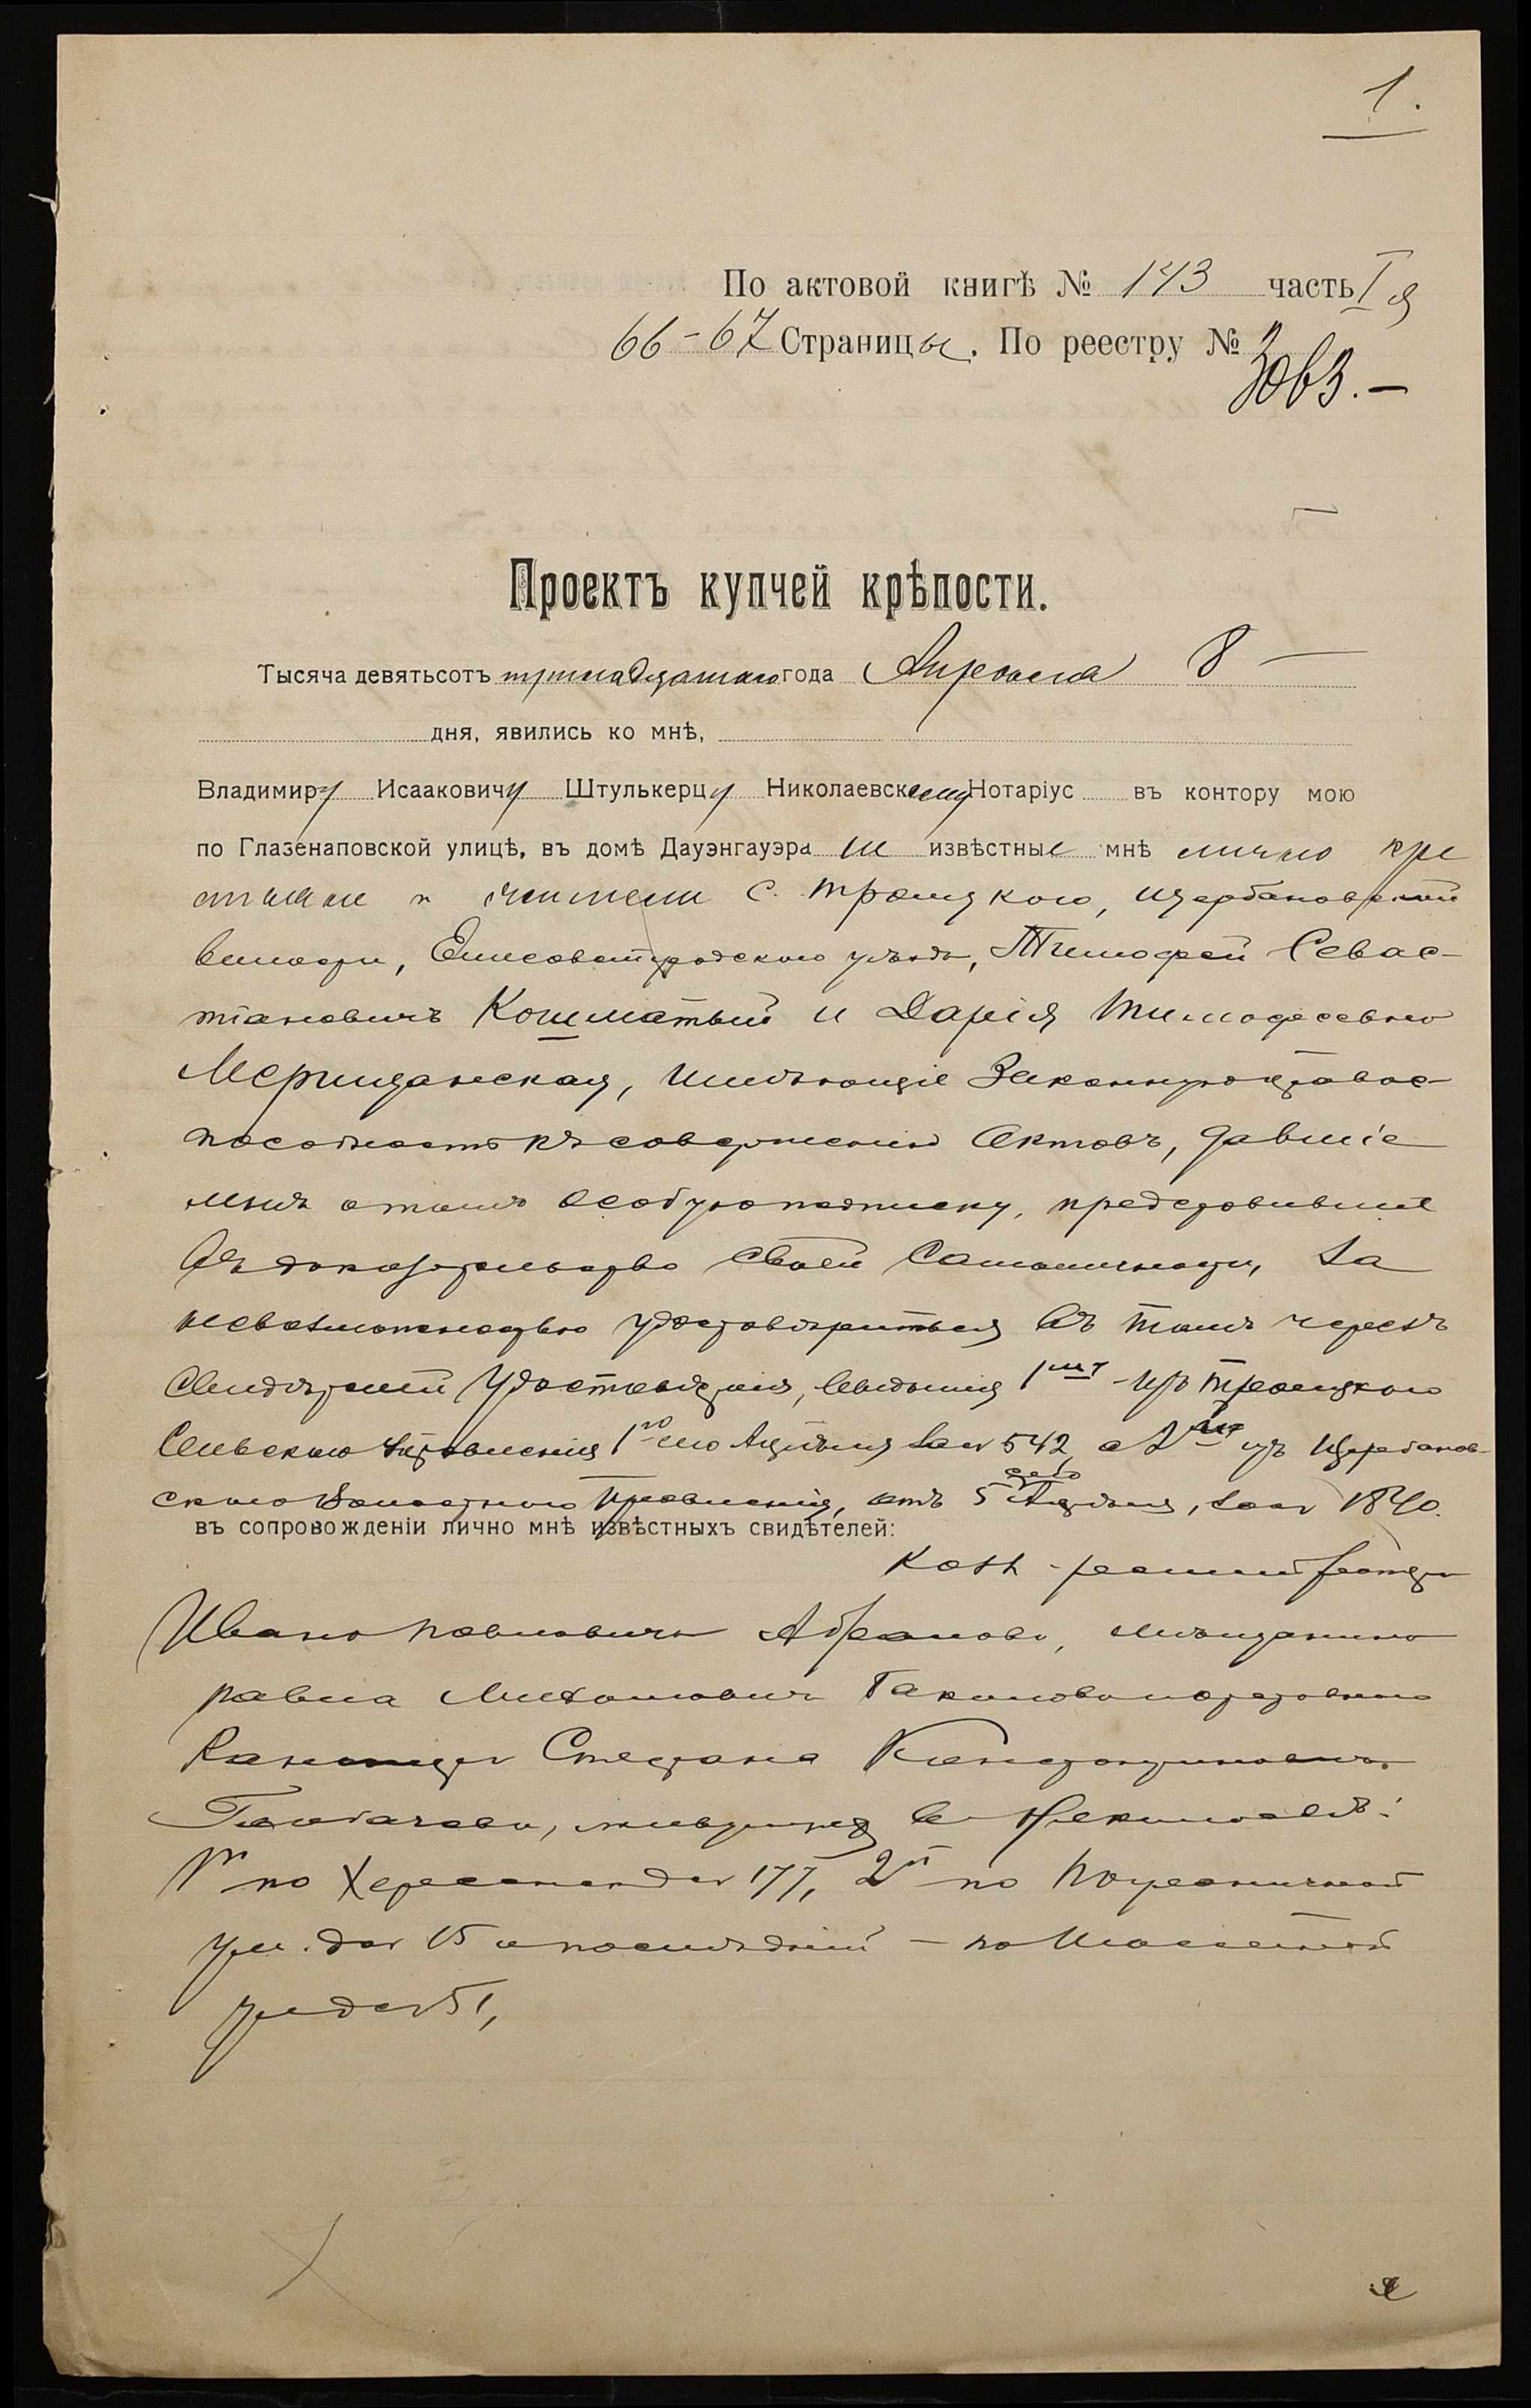 1.
По актовой книгѣ № 143 часть I я
66-67 Страницы. По реестру №
3063.—
Проектъ купчей крѣпости.
Тысяча девятьсотъ тринадцатаго года Апрѣля 8 —
дня, явились ко мнѣ,
Владимиру Исааковичу Штулькерцу Николаевскому Нотаріус въ контору мою
по Глазенаповской улицѣ, въ домѣ Дауэнгауэра не извѣстные мнѣ лично кре
стьяне и жители с. Троицкого, Щербановской
волости, Елисаветградского уѣзда, Тимофей Севас-
тіановичъ Кошматый и Дарія Тимофеевна
Мерщанская, имѣющіе законную правос-
пособность къ совершенію актовъ, давшіе
мнѣ отомъ особую подписку, представившіе
въ доказательство своей самоличности, за
невозможностью удостовѣриться въ томъ черезъ
свидѣтелей удостовѣренія, выданныя 1му - изъ Троицкого
Сельского Управленія 1го сего Апрѣля за № 542, а 2й изъ Щербанов-
ского Волостного Правленія, отъ 5 сего Апрѣля, за № 1840.
въ сопровожденіи лично мнѣ извѣстныхъ свидѣтелей:
Ивана Павловича Абрамова, мѣщанина
Павла
Степана Константиновича
живущихъ въ Николаевѣ:
1й по Херсонской д № 177, 2й по Пограничной
ул. д № 15 и послѣдній — по
ул д № 51,